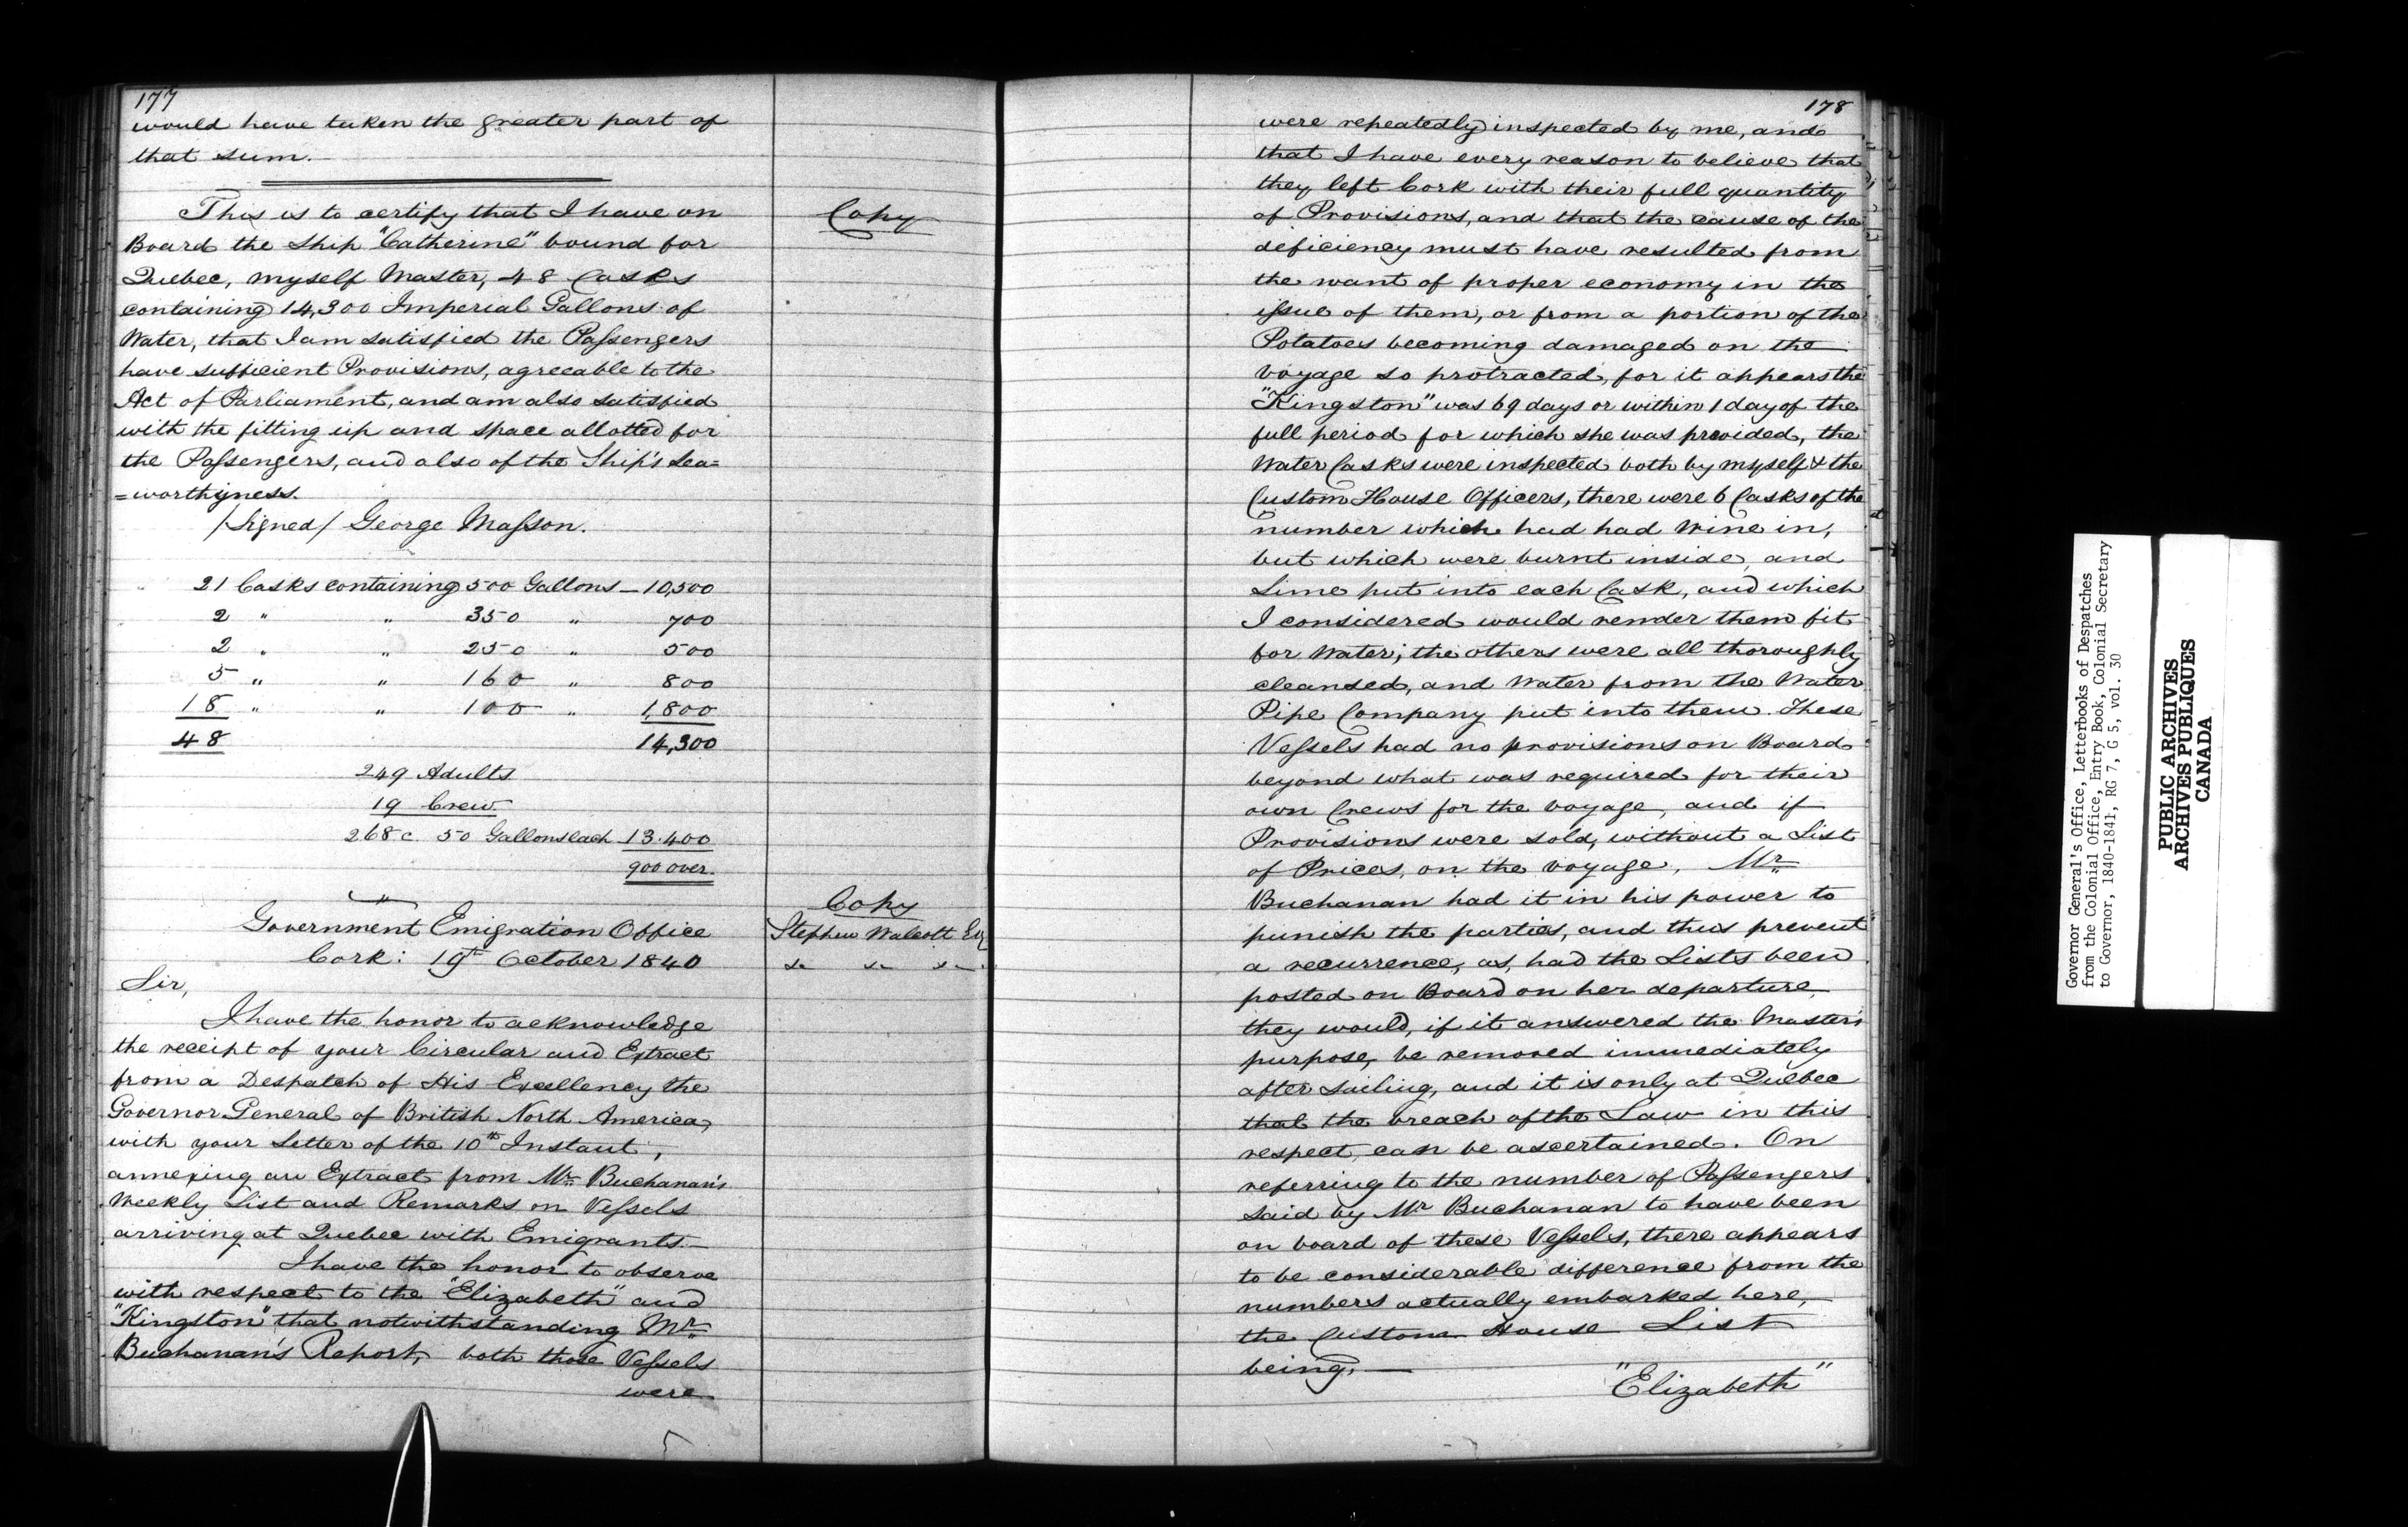 177
would have taken the greater part of
that sum.
Copy
This is to certify that I have on
Board the Ship "Catherine" bound for
Quebec, myself Master, 48 Casks
containing 14,300 Imperial Gallons of
Water, that I am satisfied the Passengers
have sufficient Provisions, agreeable to the
Act of Parliament, and am also satisfied
with the fitting up and space allotted for
the Passengers, and also of the Ship's Sea=
=worthyness.
/Signed/ George Masson.
21 Casks containing 500 Gallons — 10,500
2 " " 350 " 700
2 " " 250 " 500
5 " " 160 " 800
18 " " 100 " 1,800
48 14,300
249 Adults
19 Crew.
268 c. 50 Gallons each 13.400
900 over.
Copy
Stephen Walcott Esq
&c &c &c
Government Emigration Office
Cork: 19th October 1840
Sir,
I have the honor to acknowledge
the receipt of your Circular and Extract
from a Despatch of His Excellency the
Governor General of British North America,
with your Letter of the 10th Instant,
annexing an Extract from Mr. Buchanan's
Weekly List and Remarks on Vessels
arriving at Quebec with Emigrants.—
I have the honor to observe
with respect to the "Elizabeth" and
"Kingston" that notwithstanding Mr.
Buchanan's Report, both those Vessels
were
178
were repeatedly inspected by me, and
that I have every reason to believe that
they left Cork with their full quantity
of Provisions, and that the cause of the
deficiency must have resulted from
the want of proper economy in the
issue of them, or from a portion of the
Potatoes becoming damaged on the
voyage so protracted, for it appears the
"Kingston" was 69 days or within 1 day of the
full period for which she was provided, the
Water Casks were inspected both by myself & the
Custom House Officers, there were 6 Casks of the
number which had had Wine in,
but which were burnt inside, and
Lime put into each Cask, and which
I considered would render them fit
for Water; the others were all thoroughly
cleansed, and Water from the Water
Pipe Company put into them. These
Vessels had no provisions on Board
beyond what was required for their
own Crews for the voyage, and if
Provisions were sold, without a List
of Prices, on the voyage, Mr.
Buchanan had it in his power to
punish the parties, and thus prevent
a recurrence, as, had the Lists been
posted on Board on her departure,
they would, if it answered the Master's
purpose, be removed immediately
after sailing, and it is only at Quebec
that the breach of the Law in this
respect, can be ascertained. On
referring to the number of Passengers
said by Mr Buchanan to have been
on board of these Vessels, there appears
to be considerable difference from the
numbers actually embarked here,
the Custom House List
being,—
"Elizabeth"
Governor General's Office, Letterbooks of Despatches
from the Colonial Office, Entry Book, Colonial Secretary
to Governor, 1840-1841, RG 7, G 5, vol. 30
PUBLIC ARCHIVES
ARCHIVES PUBLIQUES
CANADA